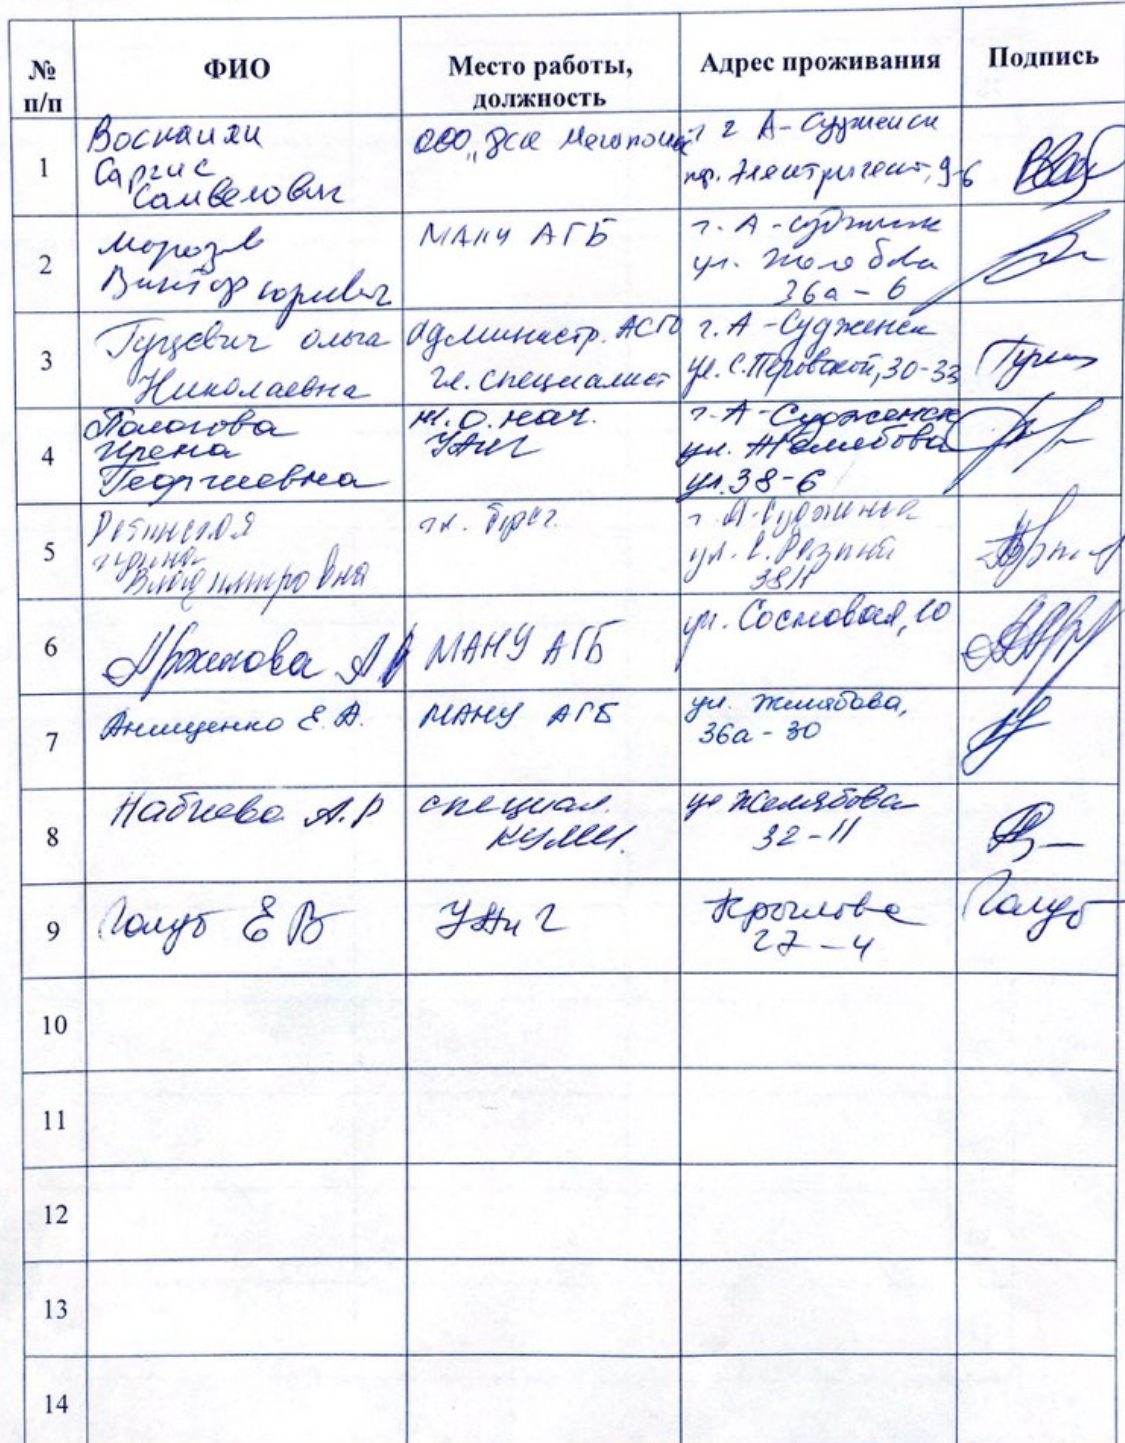 № п/п ФИО Место работы, должность Адрес проживания Подпись
1 Восканян Саргис Самвелович ООО г А-Судженск 9-6
2 Морозов Виктор Юрьевич МАНУ АГБ г. А-Судженск ул. 36а-6
3 Ольга Николаевна Администр. АСГО гл. специалист г. А-Судженск ул. С. Перовской, 30-33
4 Ирена Георгиевна И.О. нач. УЖиГ г. А-Судженск ул. Желябова ул. 38-6
5 Владимировна гл. г. А-Судженск ул.
6 МАНУ АГБ ул. Сосновая, 10
7 Анищенко Е.А. МАНУ АГБ ул. Желябова, 36а-30
8 Набиева А.Р специал. КУМИ. ул Желябова 32-11
9 Голуб Е В УЖиГ Крылова 27-4 Голуб
10
11
12
13
14